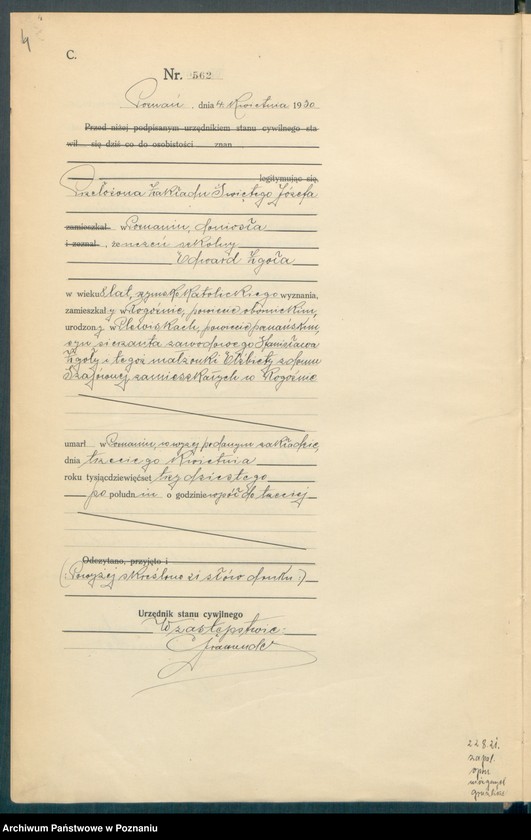 4
C.
Nr. 562
Poznań, dnia 4 Kwietnia 1930
Przed niżej podpisanym urzędnikiem stanu cywilnego sta
wił się dziś co do osobistości znan
legitymując się,
Przełożona Zakładu Świętego Józefa
zamieszkał w Poznaniu, doniosła
i zeznał, że uczeń szkolny
Edward Zgoła
w wieku 8 lat, rzymsko Katolickiego wyznania,
zamieszkały w Rogoźnie, powiecie obornickim,
urodzony w Plewiskach, powiecie poznańskim,
syn sierżanta zawodowego Stanisława
Zgoły i tegoż małżonki Elżbiety z domu
zamieszkałych w Rogoźnie
umarł w Poznaniu, w wyżej podanym zakładzie,
dnia trzeciego Kwietnia
roku tysiącdziewięćset trzydziestego
po południu o godzinie wpół do trzeciej
Odczytano, przyjęto i
(Powyżej skreślono 21 słów druku)
Urzędnik stanu cywilnego
W zastępstwie:
Archiwum Państwowe w Poznaniu